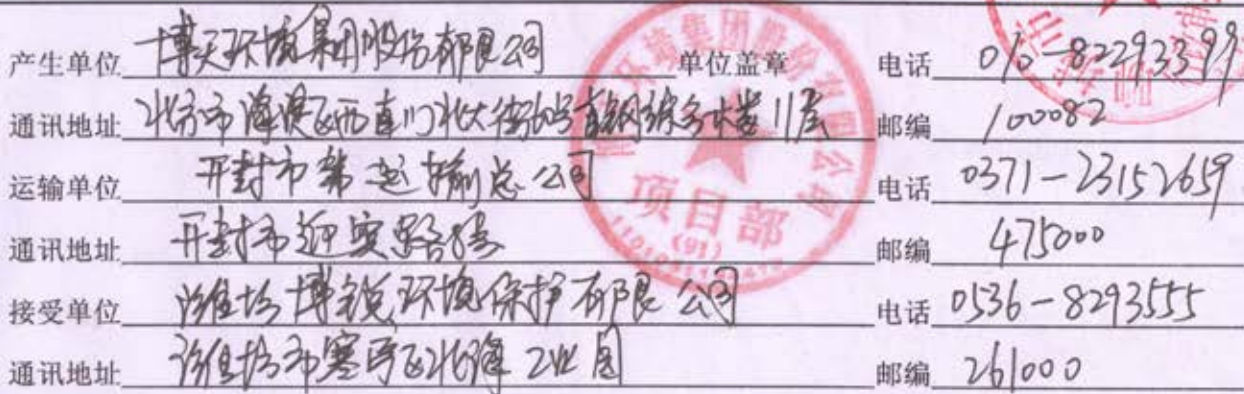 产生单位 博天环境集团股份有限公司 单位盖章 电话 010-82293399
通讯地址 北京市海淀区西直门北大街 首钢综合大楼11层 邮编 100082
运输单位 开封市第 运输总公司 电话 0371-23152659
通讯地址 开封市迎宾路 邮编 475000
接受单位 潍坊博锐环境保护有限公司 电话 0536-8293555
通讯地址 潍坊市寒亭区北海工业园 邮编 261000
环境集团股份有限公司
项目部
(91)